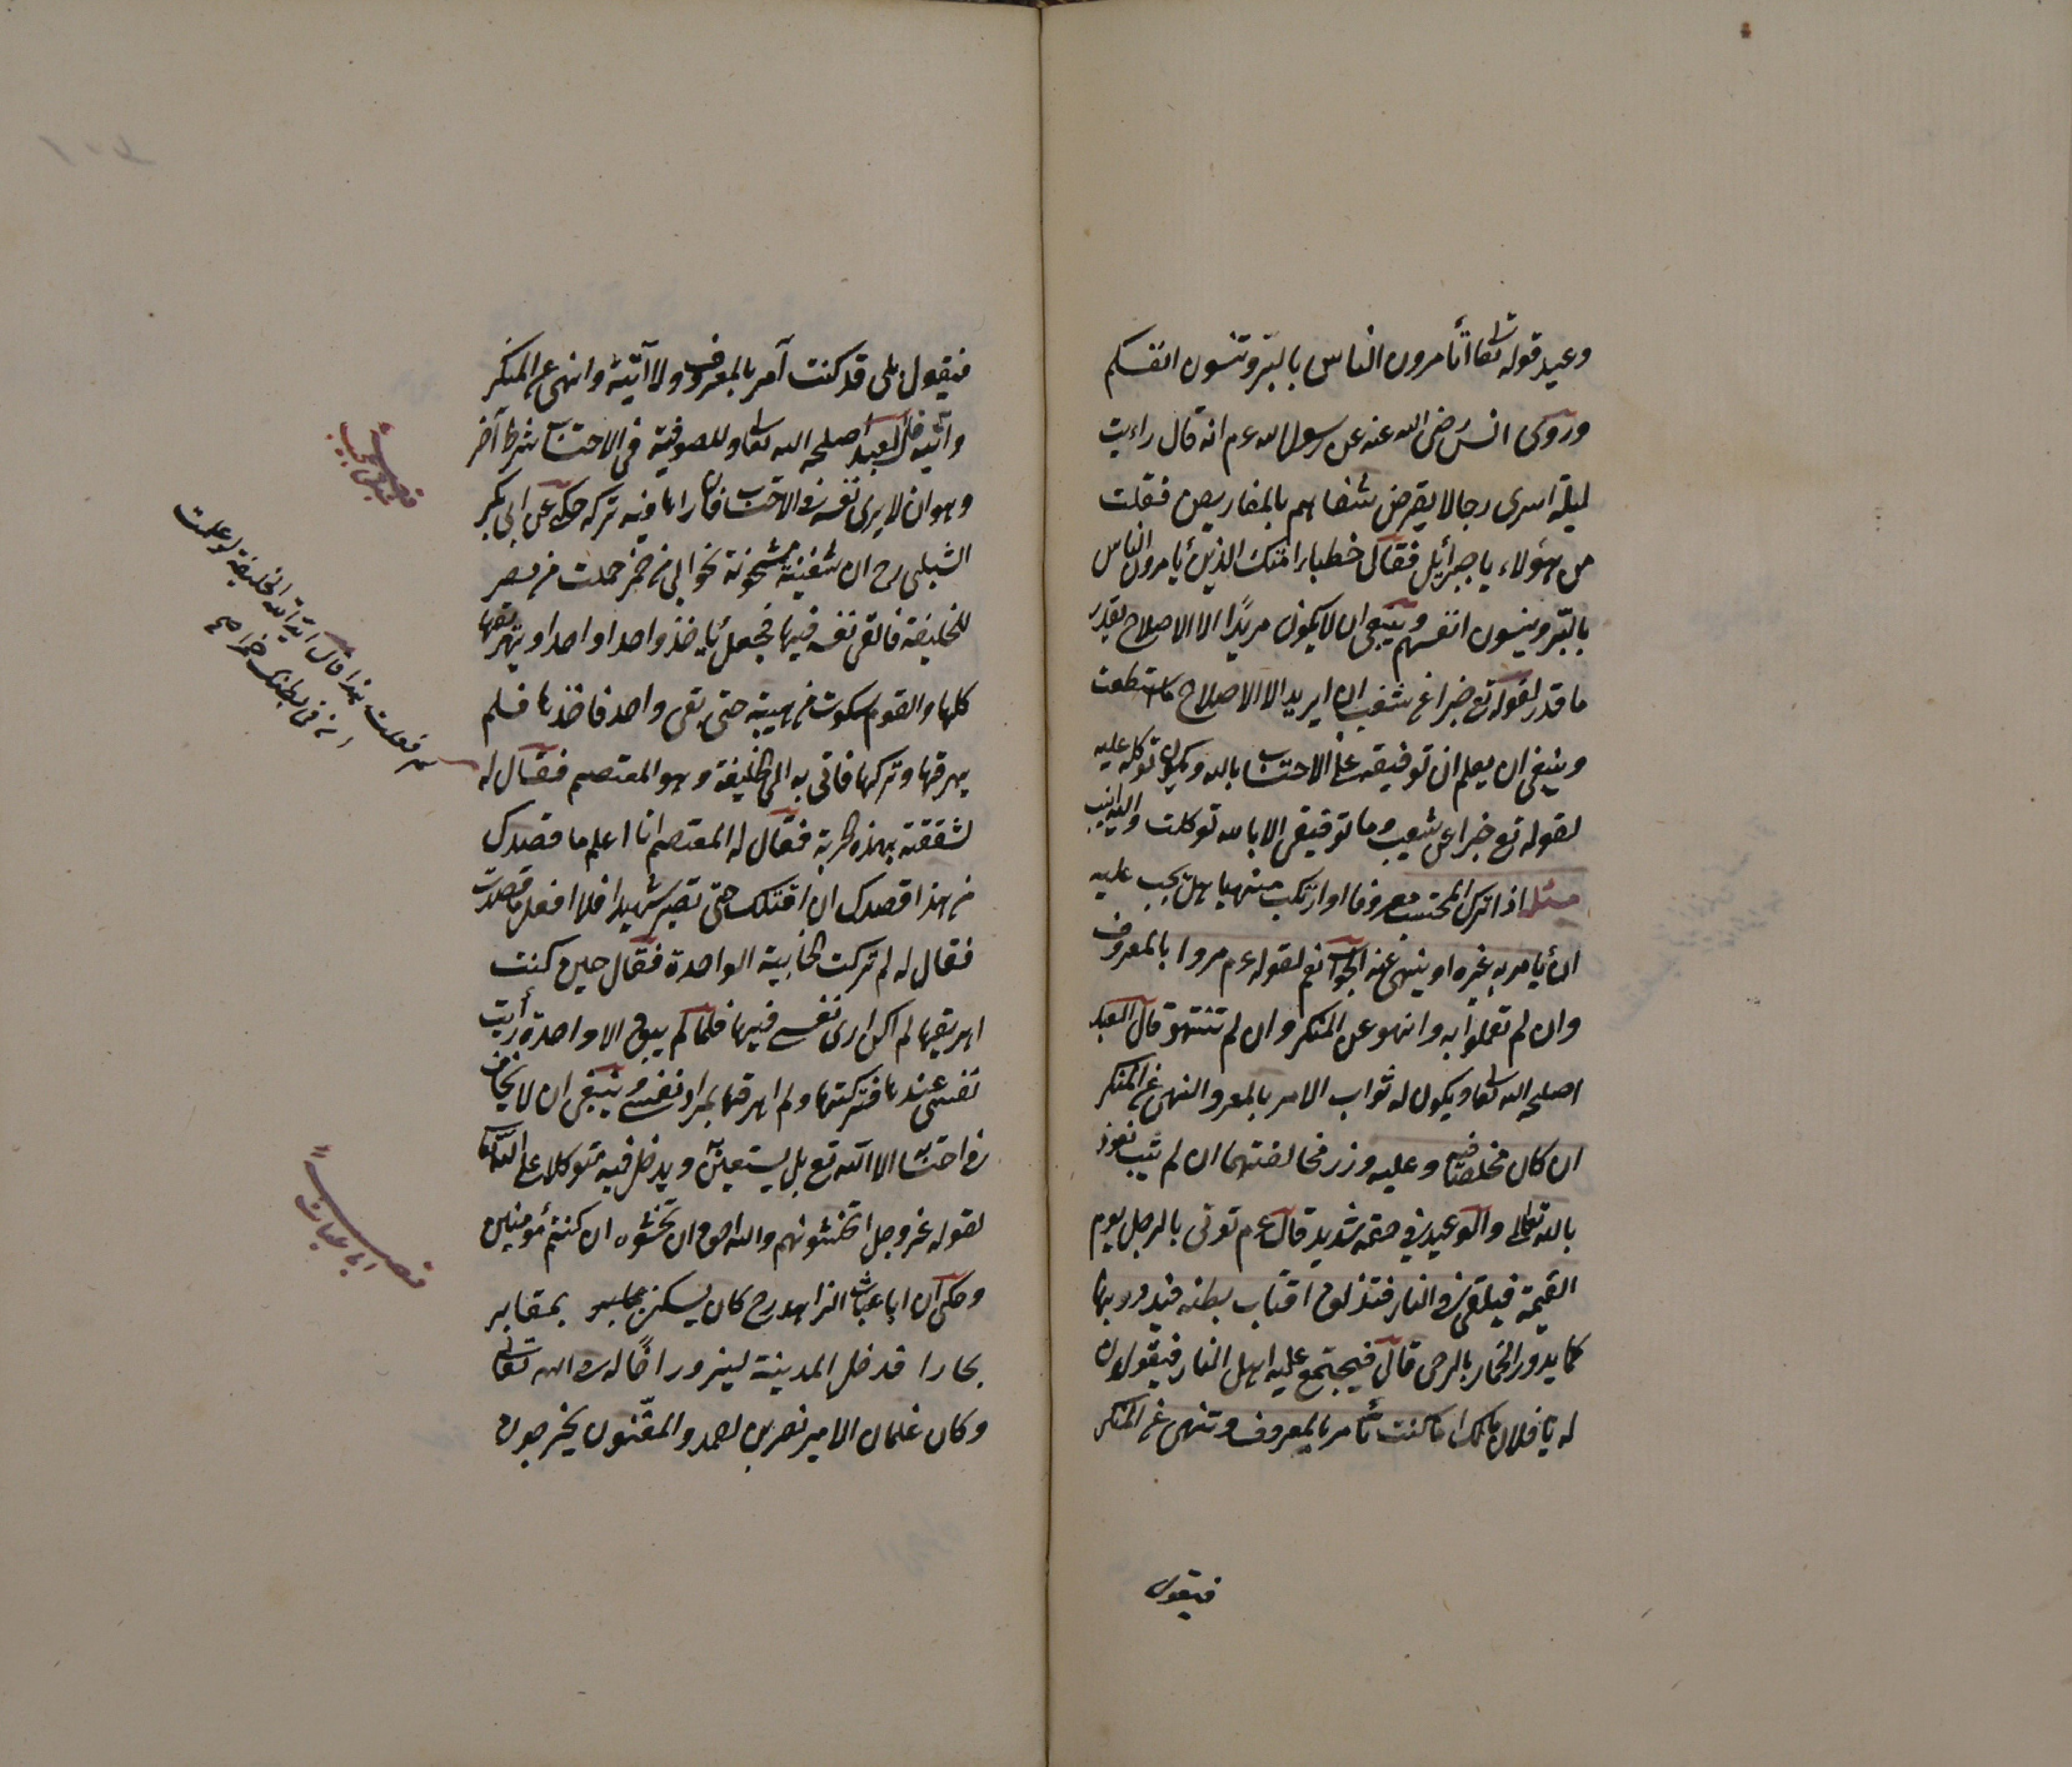 وعيد قوله تعا أتأمرون الناس بالبرّ وتنسون انفسكم
وروى انس رضى الله عنه عن رسول الله عم انه قال راءيت
ليلة اسرى رجالا يقرض شفاههم بالمقاريض فقلت
من هؤلاء يا جبرائيل فقال خطباء امتك الذين يأمرون الناس
بالبّر وينسون انفسهم وينبغى ان لا يكون مريدًا الا الاصلاح بقدر
ما قدر لقوله تع خبرا عن شعيب ان اريد الا الاصلاح ما استطعت
وينبغى ان يعلم ان توفيقه على الاحتساب بالله ويكون توكله عليه
لقوله تع خبرا عن شعيب وما توفيقى الا بالله توكلت واليه انيب
مسئلة اذا ترك المحتسب معروفا او ارتكب منهيا هل يجب عليه
ان يأمر به غيره او ينهى عنه الجواب نعم لقوله عم مروا بالمعروف
وان لم تعملوا به وانهو عن المنكر وان لم تنتهو قال العبد
اصلحه الله تعا ويكون له ثواب الامر بالمعرو والنهى عن المنكر
ان كان مخلصا فيه وعليه وزر مخالفتهما ان لم يتب نعوذ
بالله تعالى والوعيد فى حقه شديد قال عم توتى بالرجل يوم
القيمة فيلقى فى النار فتندلق اقتاب بطنه فيدور بها
كما يدور الحمار بالرحى قال فيجتمع عليه اهل النار فيقولون
له يا فلان مالك اما كنت تأمر بالمعروف وتنهى عن المنكر
فيقول
فيقول بلى قد كنت آمر بالمعروف ولا آتيه وانهى عن المنكر
وآتيه قال العبد اصلحه الله تعا وللصوفية فى الاحتساب شرط آخر
وهو ان لا يرى نفسه فى الاحتساب فان راها فيه تركه حكى عن ابى بكر
الشبلى رح ان سفينة مشحونة بخوابى من خمر حملت من مصر
للخليفة فالقى نفسه فيها فجعل يأخذ واحدا واحدا ويهريقها
كلها والقوم سكوت من هيبته حتى بقى واحد فاخذها فلم
يهرقها وتركها فاتى به الى الخليفة وهو المعتصم فقال له
لشققته بهذه الحربة فقال له المعتصم انا اعلم ما قصدك
من هذا قصدك ان اقتلك حتى تصير شهيدا فلا افعل ما قصدت
فقال له لم تركت الخابية الواحدة فقال حين كنت
اهريقها لم اكن ارى نفسى فيها فلما لم يبق الا واحدة رأيت
نفسى عندها فتركتها ولم اهرقها بمراد نفسى وينبغى ان لا يخاف
فى احتسابه الا الله تع بل يستعين ويدخل فيه متوكلا على الله تعا
لقوله عز وجل اتخشونهم والله احق ان تخشوه ان كنتم مؤمنين
وحكى ان ابا غياث الزاهد رح كان يسكن بمقابر
بخارا فدخل المدينة ليزور اخًا له فى الله تعالى
وكان غلمان الامير نصر بن احمد والمغّنون يخرجون
لم فعلت هذا قال ايد الله الخليفة لو علمت
ان فى بطنك خمرا صح
قصة
قصة
ابى غياث